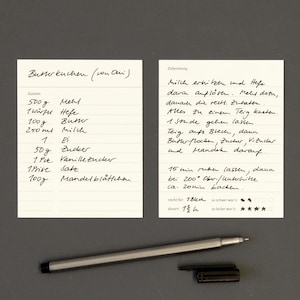 Butterkuchen (von Omi)
Zutaten
500g Mehl
1 Würfel Hefe
100g Butter
250ml Milch
1 Ei
50g Zucker
1 Pck. Vanillezucker
1 Prise Salz
100g Mandelblättchen
Zubereitung
Milch erhitzen und Hefe
darin auflösen. Mehl dazu,
danach die restl. Zutaten
Alles zu einem Teig kneten
1 Stunde gehen lassen
Teig aufs Blech, dann
Butterflocken, Zucker, V.Zucker
und Mandeln darauf
15 min ruhen lassen, dann
bei 200° Ober/Unterhitze
ca. 20min backen
1 Blech
so schwer war's
1 ½ h
so lecker war's